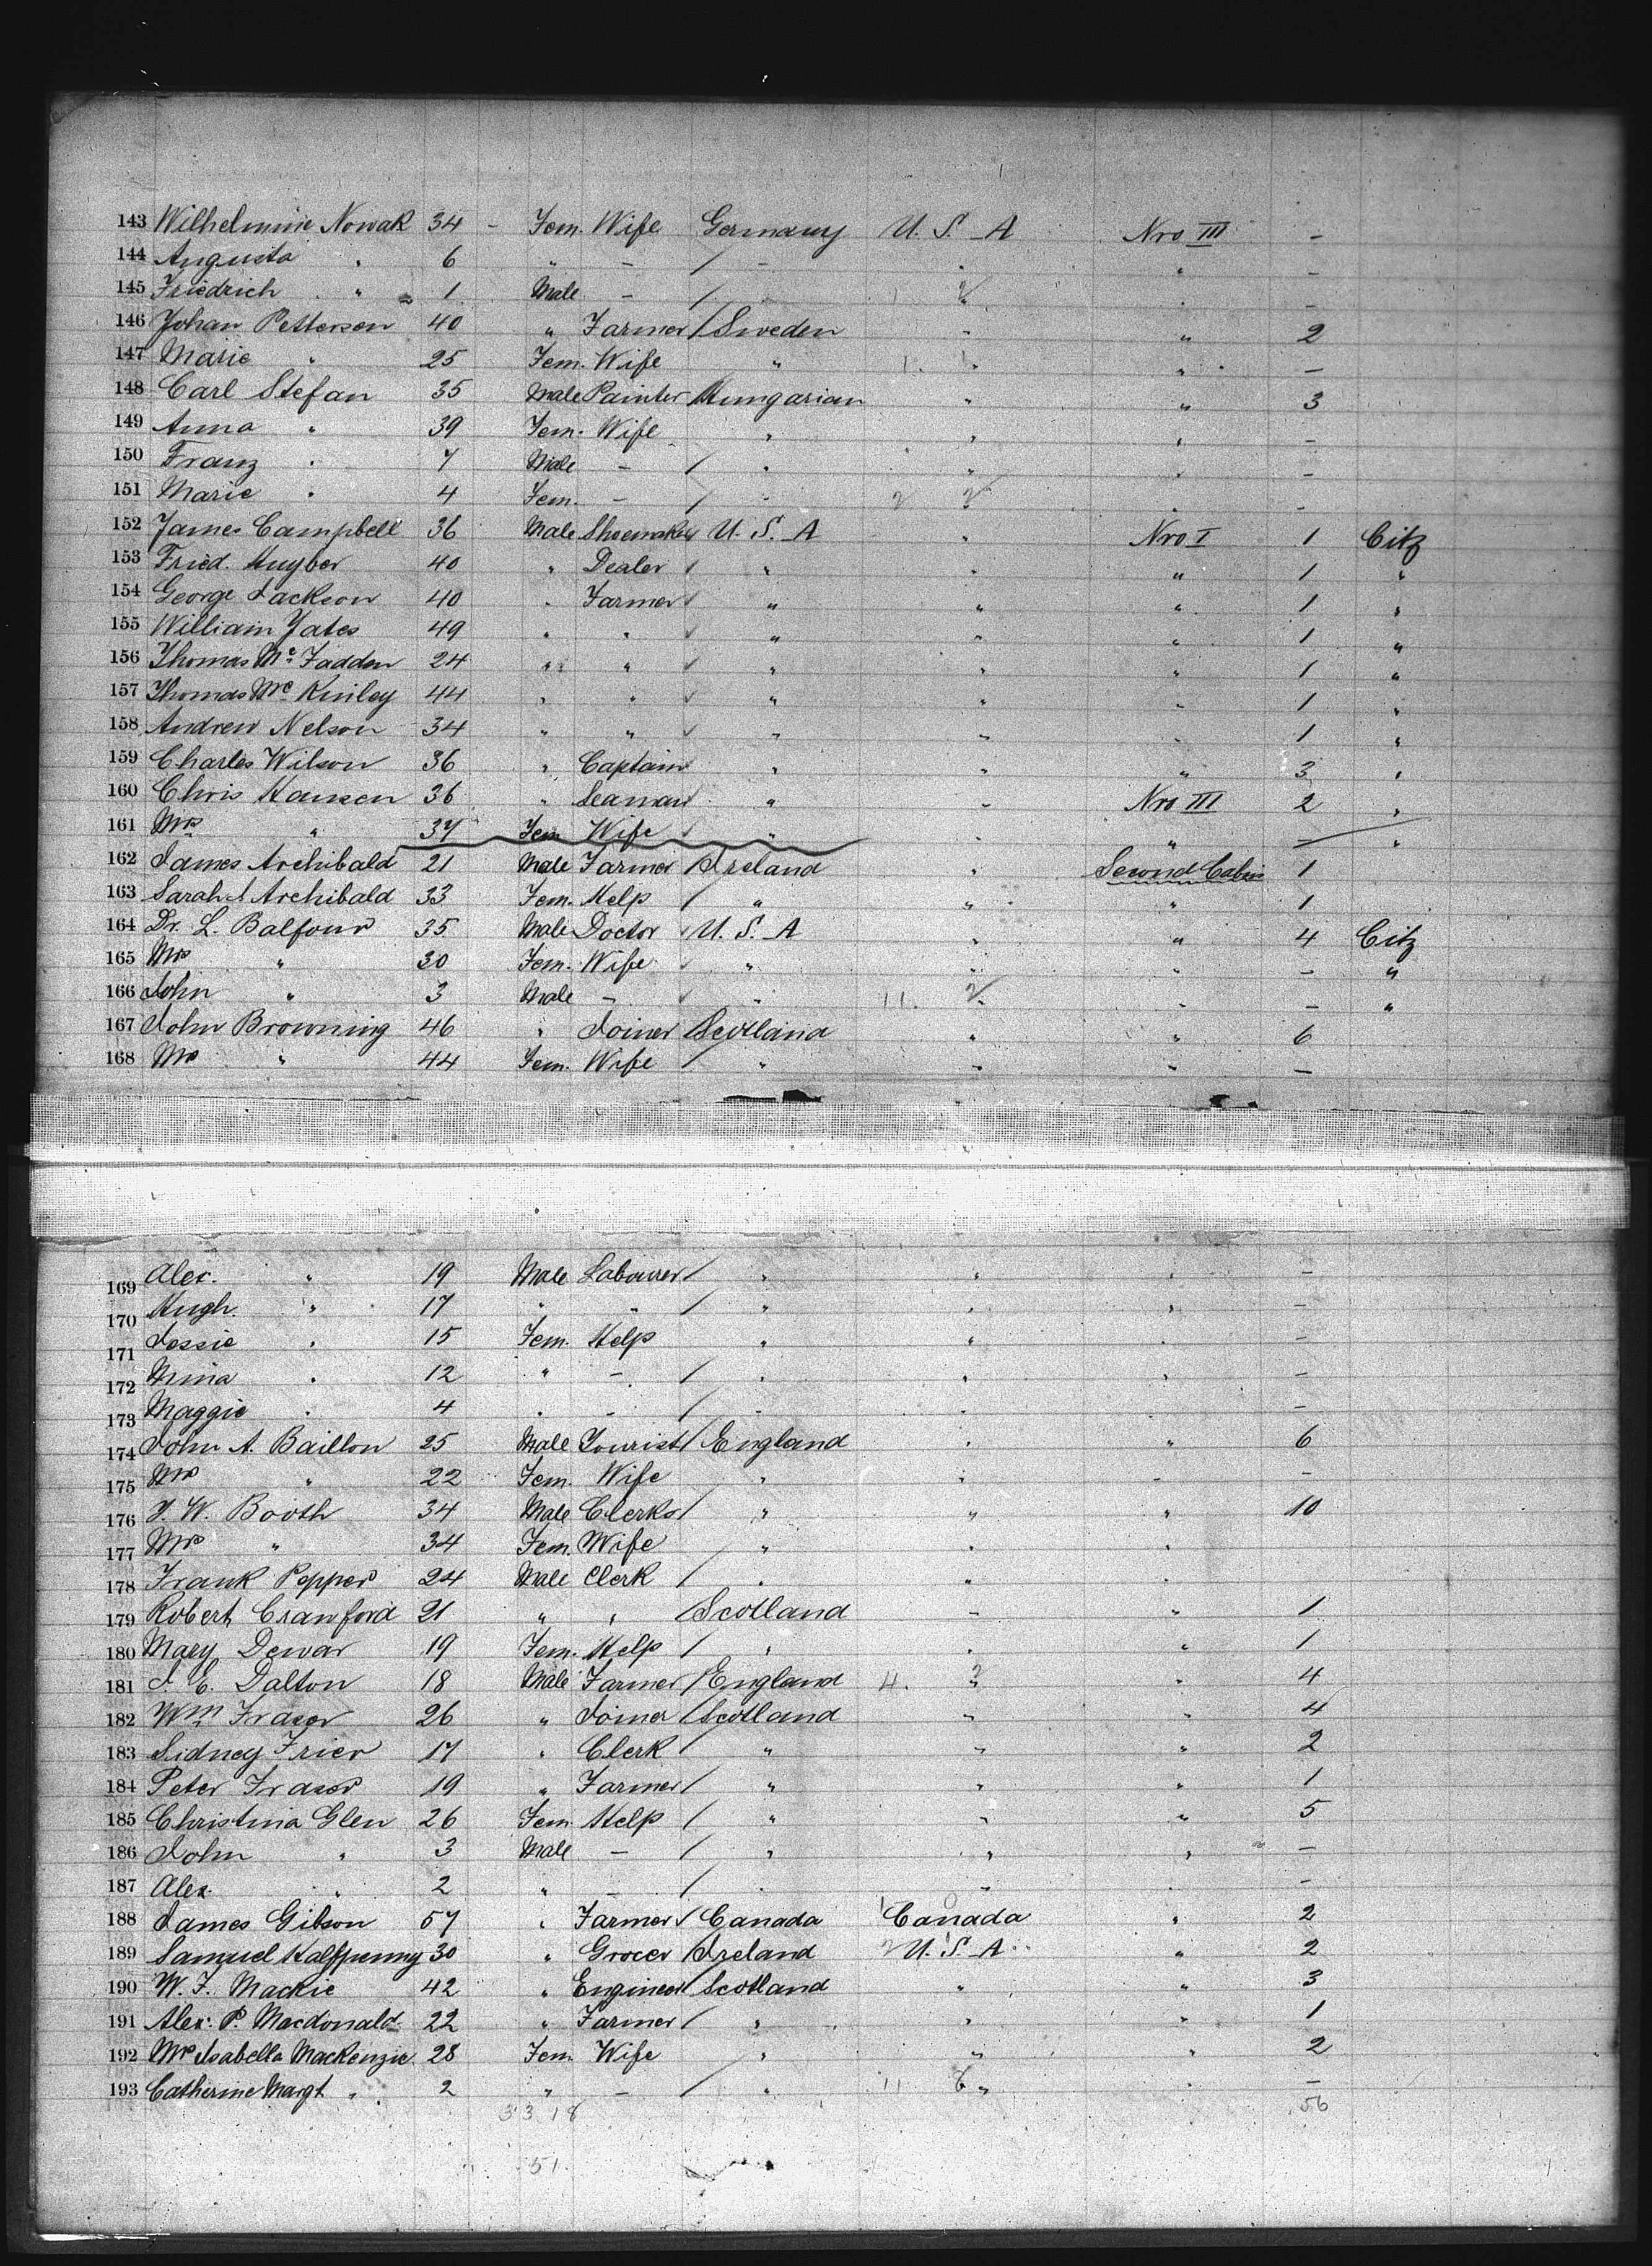 143 Wilhelmine Nowak 34 - Fem. Wife Germany U. S. A Nro III -
144 Augusta " 6 " - / - " " -
145 Friedrich " 1 Male - / " " -
146 Johan Petterson 40 " Farmer / Sweden " " 2
147 Marie " 25 Fem. Wife " " " -
148 Carl Stefan 35 Male Painter / Hungarian " " 3
149 Anna " 39 Fem. Wife " " " -
150 Franz " 7 Male - / " " " -
151 Marie " 4 Fem. - / " 2 2 " -
152 James Campbell 36 Male Shoemaker U. S. A " Nro I 1 Citz
153 Fried. Huyber 40 " Dealer " " " 1 "
154 George Jackson 40 " Farmer " " " 1 "
155 William Yates 49 " " " " " 1 "
156 Thomas Mc Fadden 24 " " " " " 1 "
157 Thomas Mc Kinley 44 " " " " " 1 "
158 Andrew Nelson 34 " " " " " 1 "
159 Charles Wilson 36 " Captain " " " 3 "
160 Chris Hansen 36 " Seaman " " Nro III 2 "
161 Mrs " 37 Fem Wife " " " - "
162 James Archibald 21 Male Farmer / Ireland " Second Cabin 1
163 Sarah A Archibald 33 Fem. Help / " " " 1
164 Dr. L. Balfour 35 Male Doctor U. S. A " " 4 Citz
165 Mrs " 30 Fem. Wife " " " - "
166 John " 3 Male - " 11. 2 " - "
167 John Browning 46 " Joiner / Scotland " " 6
168 Mrs " 44 Fem. Wife / " " " -
169 Alex. " 19 Male Labourer / " " " -
170 Hugh " 17 " " / " " " -
171 Jessie " 15 Fem. Help " " " -
172 Mina " 12 " - / " " " -
173 Maggie " 4 " - / " " -
174 John A. Baillon 25 Male Tourist / England " " 6
175 Mrs " 22 Fem. Wife " " " -
176 T. W. Booth 34 Male Clerks / " " " 10
177 Mrs " 34 Fem. Wife " " "
178 Frank Pepper 24 Male Clerk / " " "
179 Robert Crawford 21 " " / Scotland " " 1
180 Mary Dewar 19 Fem. Help / " " " 1
181 J. E. Dalton 18 Male Farmer / England 4. 3 " 4
182 Wm Fraser 26 " Joiner / Scotland " " 4
183 Sidney Frier 17 " Clerk / " " " 2
184 Peter Fraser 19 " Farmer / " " " 1
185 Christina Glen 26 Fem Help / " " " 5
186 John " 3 Male - / " " " -
187 Alex. " 2 " - / " " " -
188 James Gibson 57 " Farmer Canada Canada " 2
189 Samuel Halfpenny 30 " Grocer / Ireland U. S. A " 2
190 W. F. Mackie 42 " Engineer / Scotland " " 3
191 Alex. P. Macdonald 22 " Farmer / " " " 1
192 Mrs Isabella Mackenzie 28 Fem Wife " " " 2
193 Catherine Margt " 2 " - / " 11 8 " " -
33 18 56
51